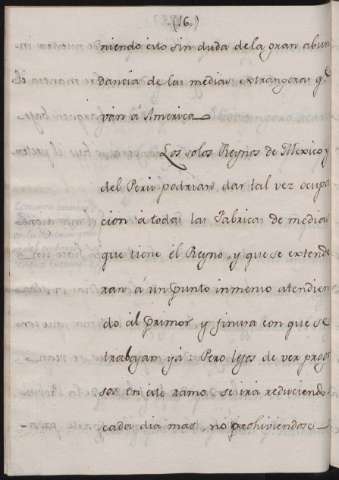 (16.)
niendo esto sin duda de la gran abun
dancia de las medias extrangeras q.e
ván á America
Los solos Reynos de Mexico, y
del Perú podrian dar tal vez ocupa
cion á todas las Fabricas de medias
que tiene el Reyno, y que se extende
ran á un punto inmenso atendien
do al primor, y finura con que se
trabajan yá. Pero lejos de ver progre
sos en este ramo se irá reduciendo
cada dia mas, no prohiviendose